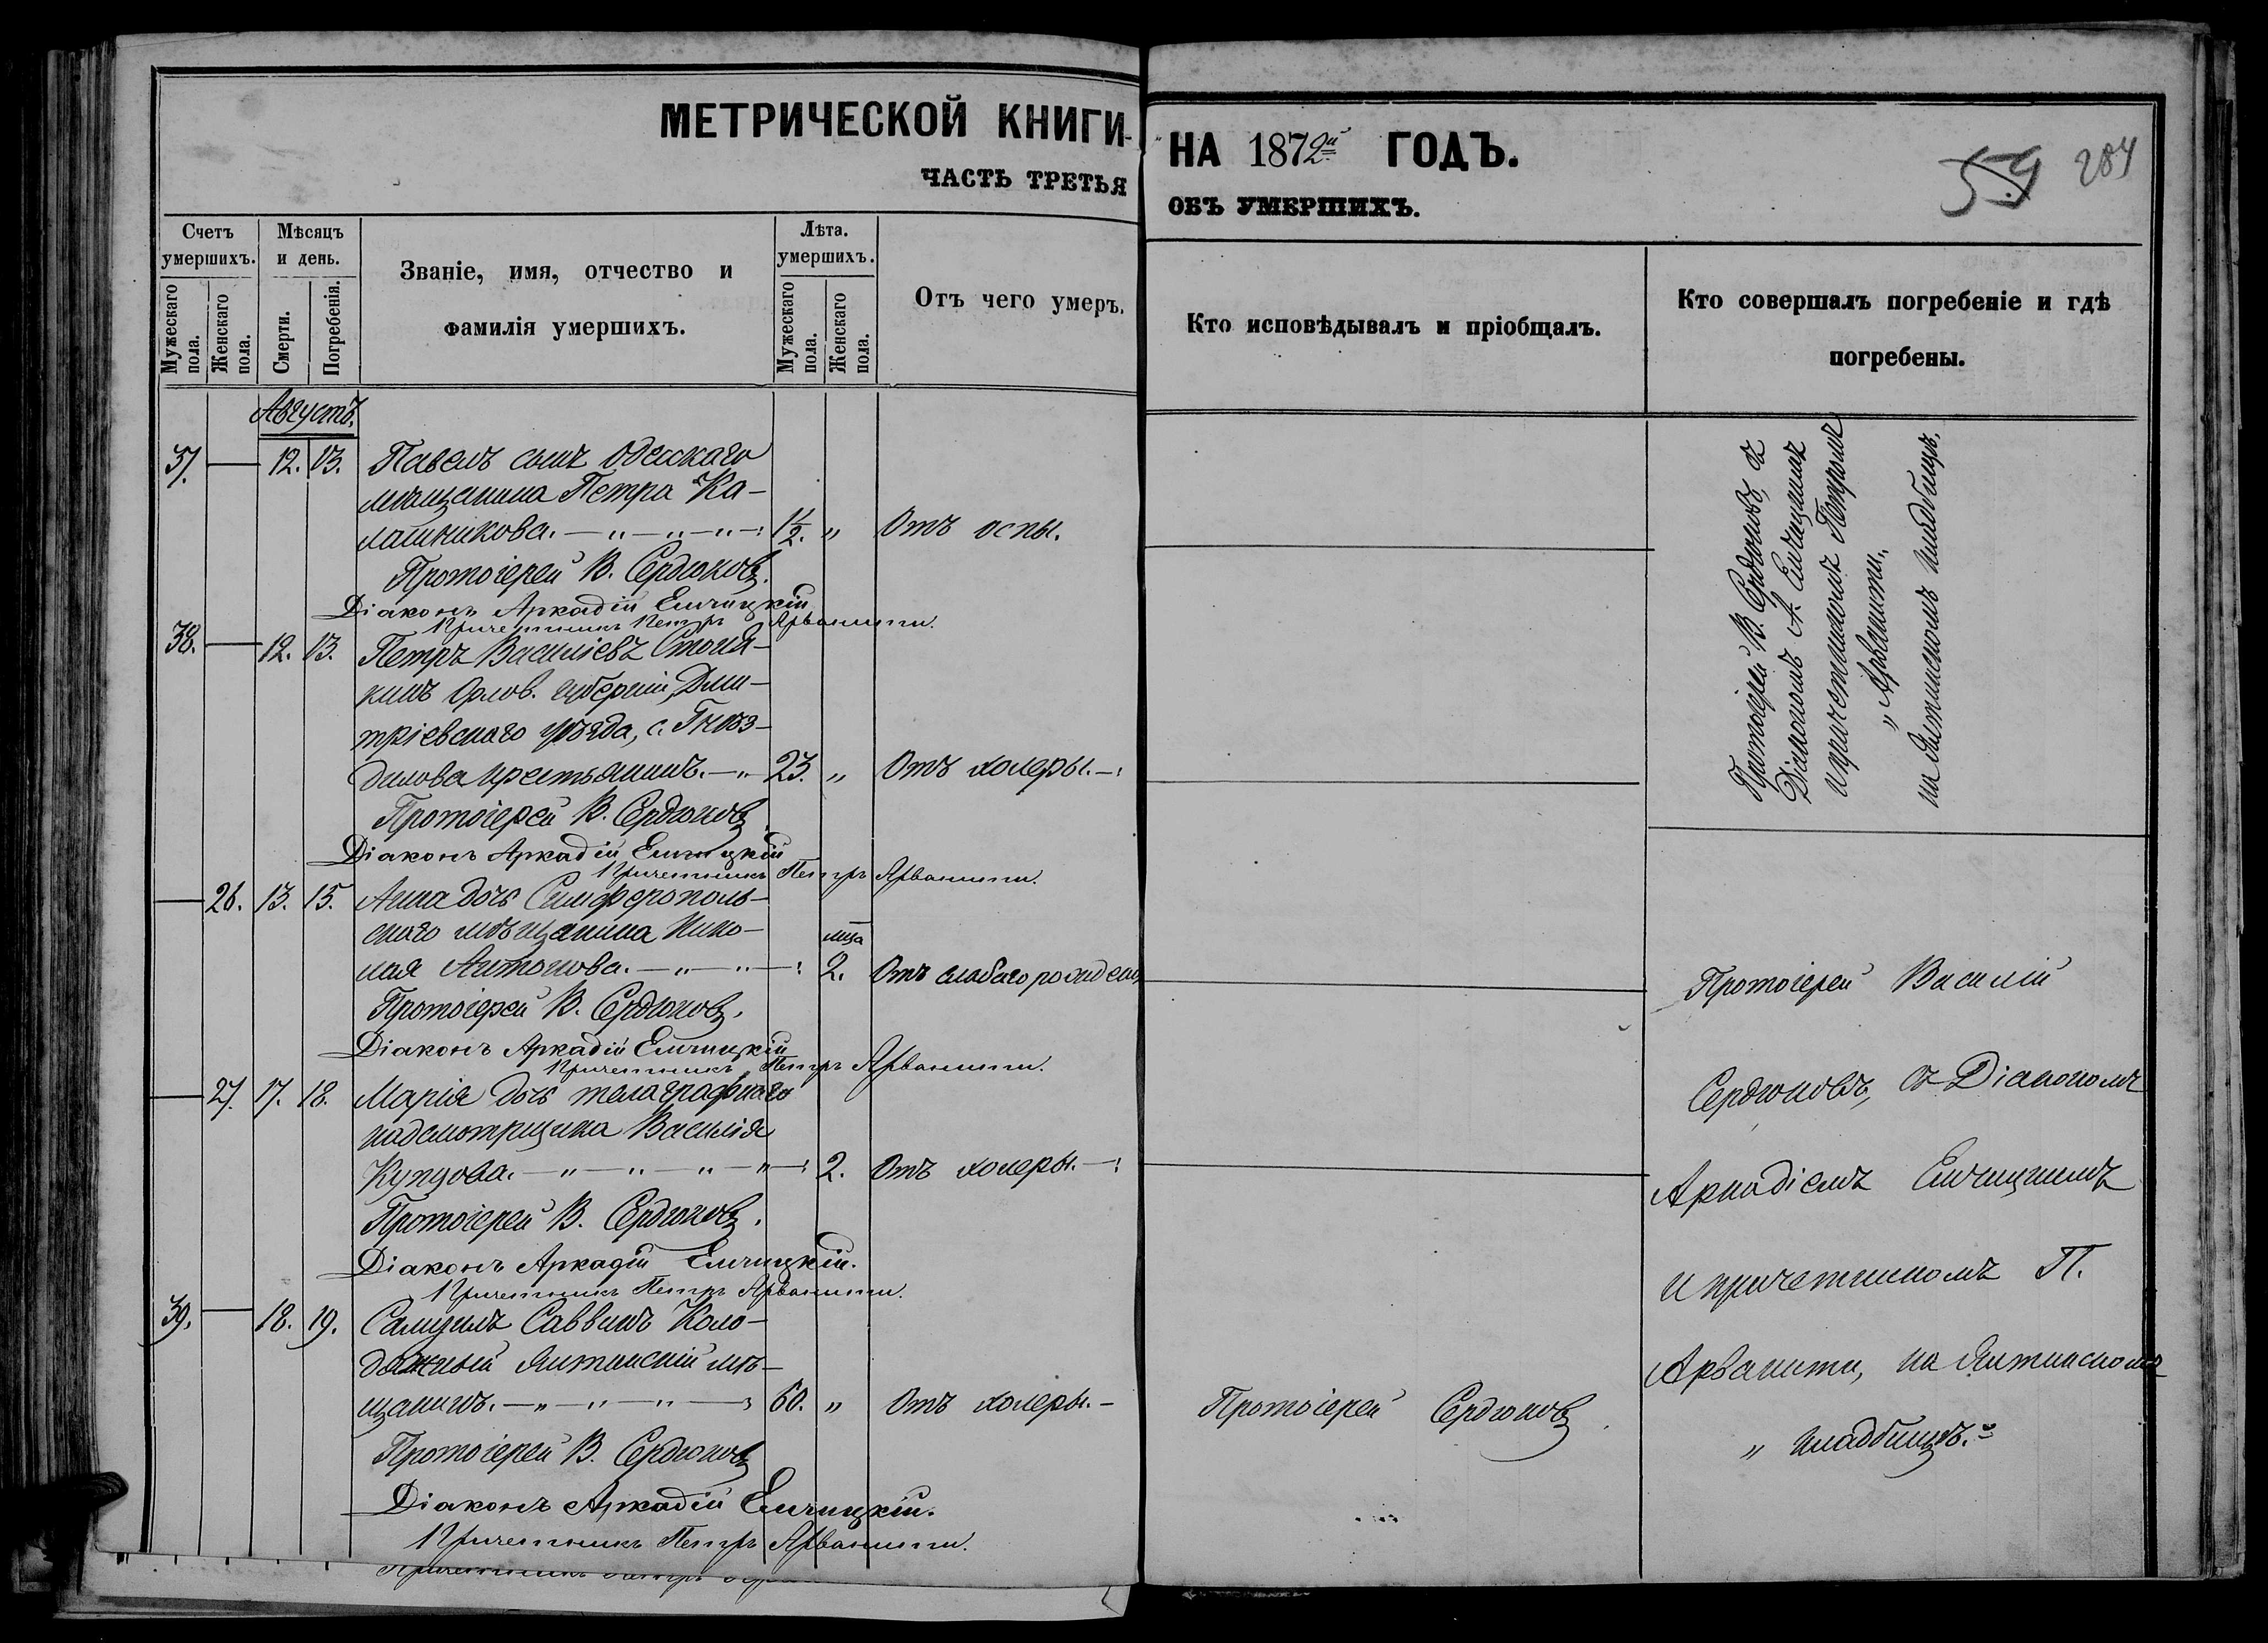 МЕТРИЧЕСКОЙ КНИГИ
ЧАСТЬ ТРЕТЬЯ
НА 1872й ГОДЪ.
ОБЪ УМЕРШИХЪ.
59 284
Счетъ умершихъ.
Мужескаго пола.
Женскаго пола.
Мѣсяцъ и день.
Смерти.
Погребенія.
Званіе, имя, отчество и
фамилія умершихъ.
Лѣта. умершихъ.
Мужескаго пола.
Женскаго пола.
Отъ чего умеръ.
Кто исповѣдывалъ и пріобщалъ.
Кто совершалъ погребеніе и гдѣ
погребены.
Августъ.
37. — 12. 13. Павелъ сынъ Одесскаго
мѣщанина Петра Ка-
лашникова. — „ — „ — „ — : 1½. „ Отъ оспы.
Протоіерей В. Сердюковъ.
Діаконъ Аркадій Емчицкій
Причетникъ Петръ Арванити.
38. — 12. 13. Петръ Васильевъ
кинъ Орлов. губерніи, Дми-
тріевскаго уѣзда, с. Гнѣз-
дилова крестьянинъ. — „ 23. „ Отъ холеры. — :
Протоіерей В. Сердюковъ
Діаконъ Аркадій Емчицкій
Причетникъ Петръ Арванити.
— 26. 13. 15. Анна дочь Симферополь-
скаго мѣщанина Нико- мца
лая Антонова. — „ — „ — : 2. Отъ слабаго рожденія
Протоіерей В. Сердюковъ.
Діаконъ Аркадій Емчицкій
Причетникъ Петръ Арванити.
— 27. 17. 18. Марія дочь телаграфнаго
надсмотрщика Василія
Купцова. — „ — „ — „ — „ — : 2. Отъ холеры. — :
Протоіерей В. Сердюковъ.
Діаконъ Аркадій Емчицкій.
Причетникъ Петръ Арванити.
39. — 18. 19. Самуилъ Саввинъ Коло-
дяжный Ялтинскій мѣ-
щанинъ. — „ — „ — „ — : 60. „ Отъ холеры. —
Протоіерей В. Сердюковъ
Діаконъ Аркадій Емчицкій.
Причетникъ Петръ Арванити.
Протоіерей Сердюковъ
Протоіерей В. Сердюковъ, съ
Діакономъ А. Емчицкимъ
и причетникомъ Петромъ
„ Арванити „
на Ялтинскомъ кладбищѣ.
Протоіерей Василій
Сердюковъ, съ Діакономъ
Аркадіемъ Емчицкимъ
и причетникомъ П.
Арванити, на Ялтинскомъ
„ кладбищѣ.